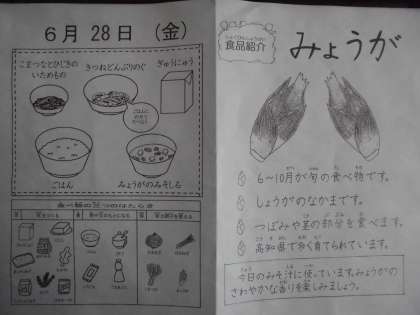 6月 28日 (金)
こまつなとひじきの
いためもの
きつねどんぶりのぐ
ぎゅうにゅう
ごはんに
ごはん
みょうがのみそしる
食品紹介
みょうが
6～10月が旬の食べ物です。
しょうがのなかまです。
つぼみや茎の部分を食べます。
高知県で多く育てられています。
今日のみそ汁に使っています。みょうがの
さわやかな香りを楽しみましょう。